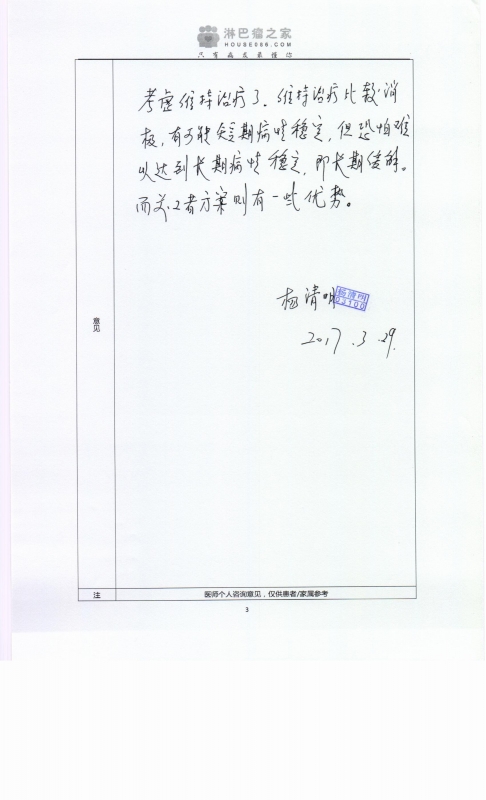 淋巴瘤之家
HOUSE086.COM
只有病友最懂你
考虑维持治疗了。维持治疗比较消
极，有可能短期病情稳定，但恐怕难
以达到长期病情稳定，即长期缓解。
而前2者方案则有一些优势。
杨清明
杨清明
03100
2017.3.29.
意见
注
医师个人咨询意见，仅供患者/家属参考
3